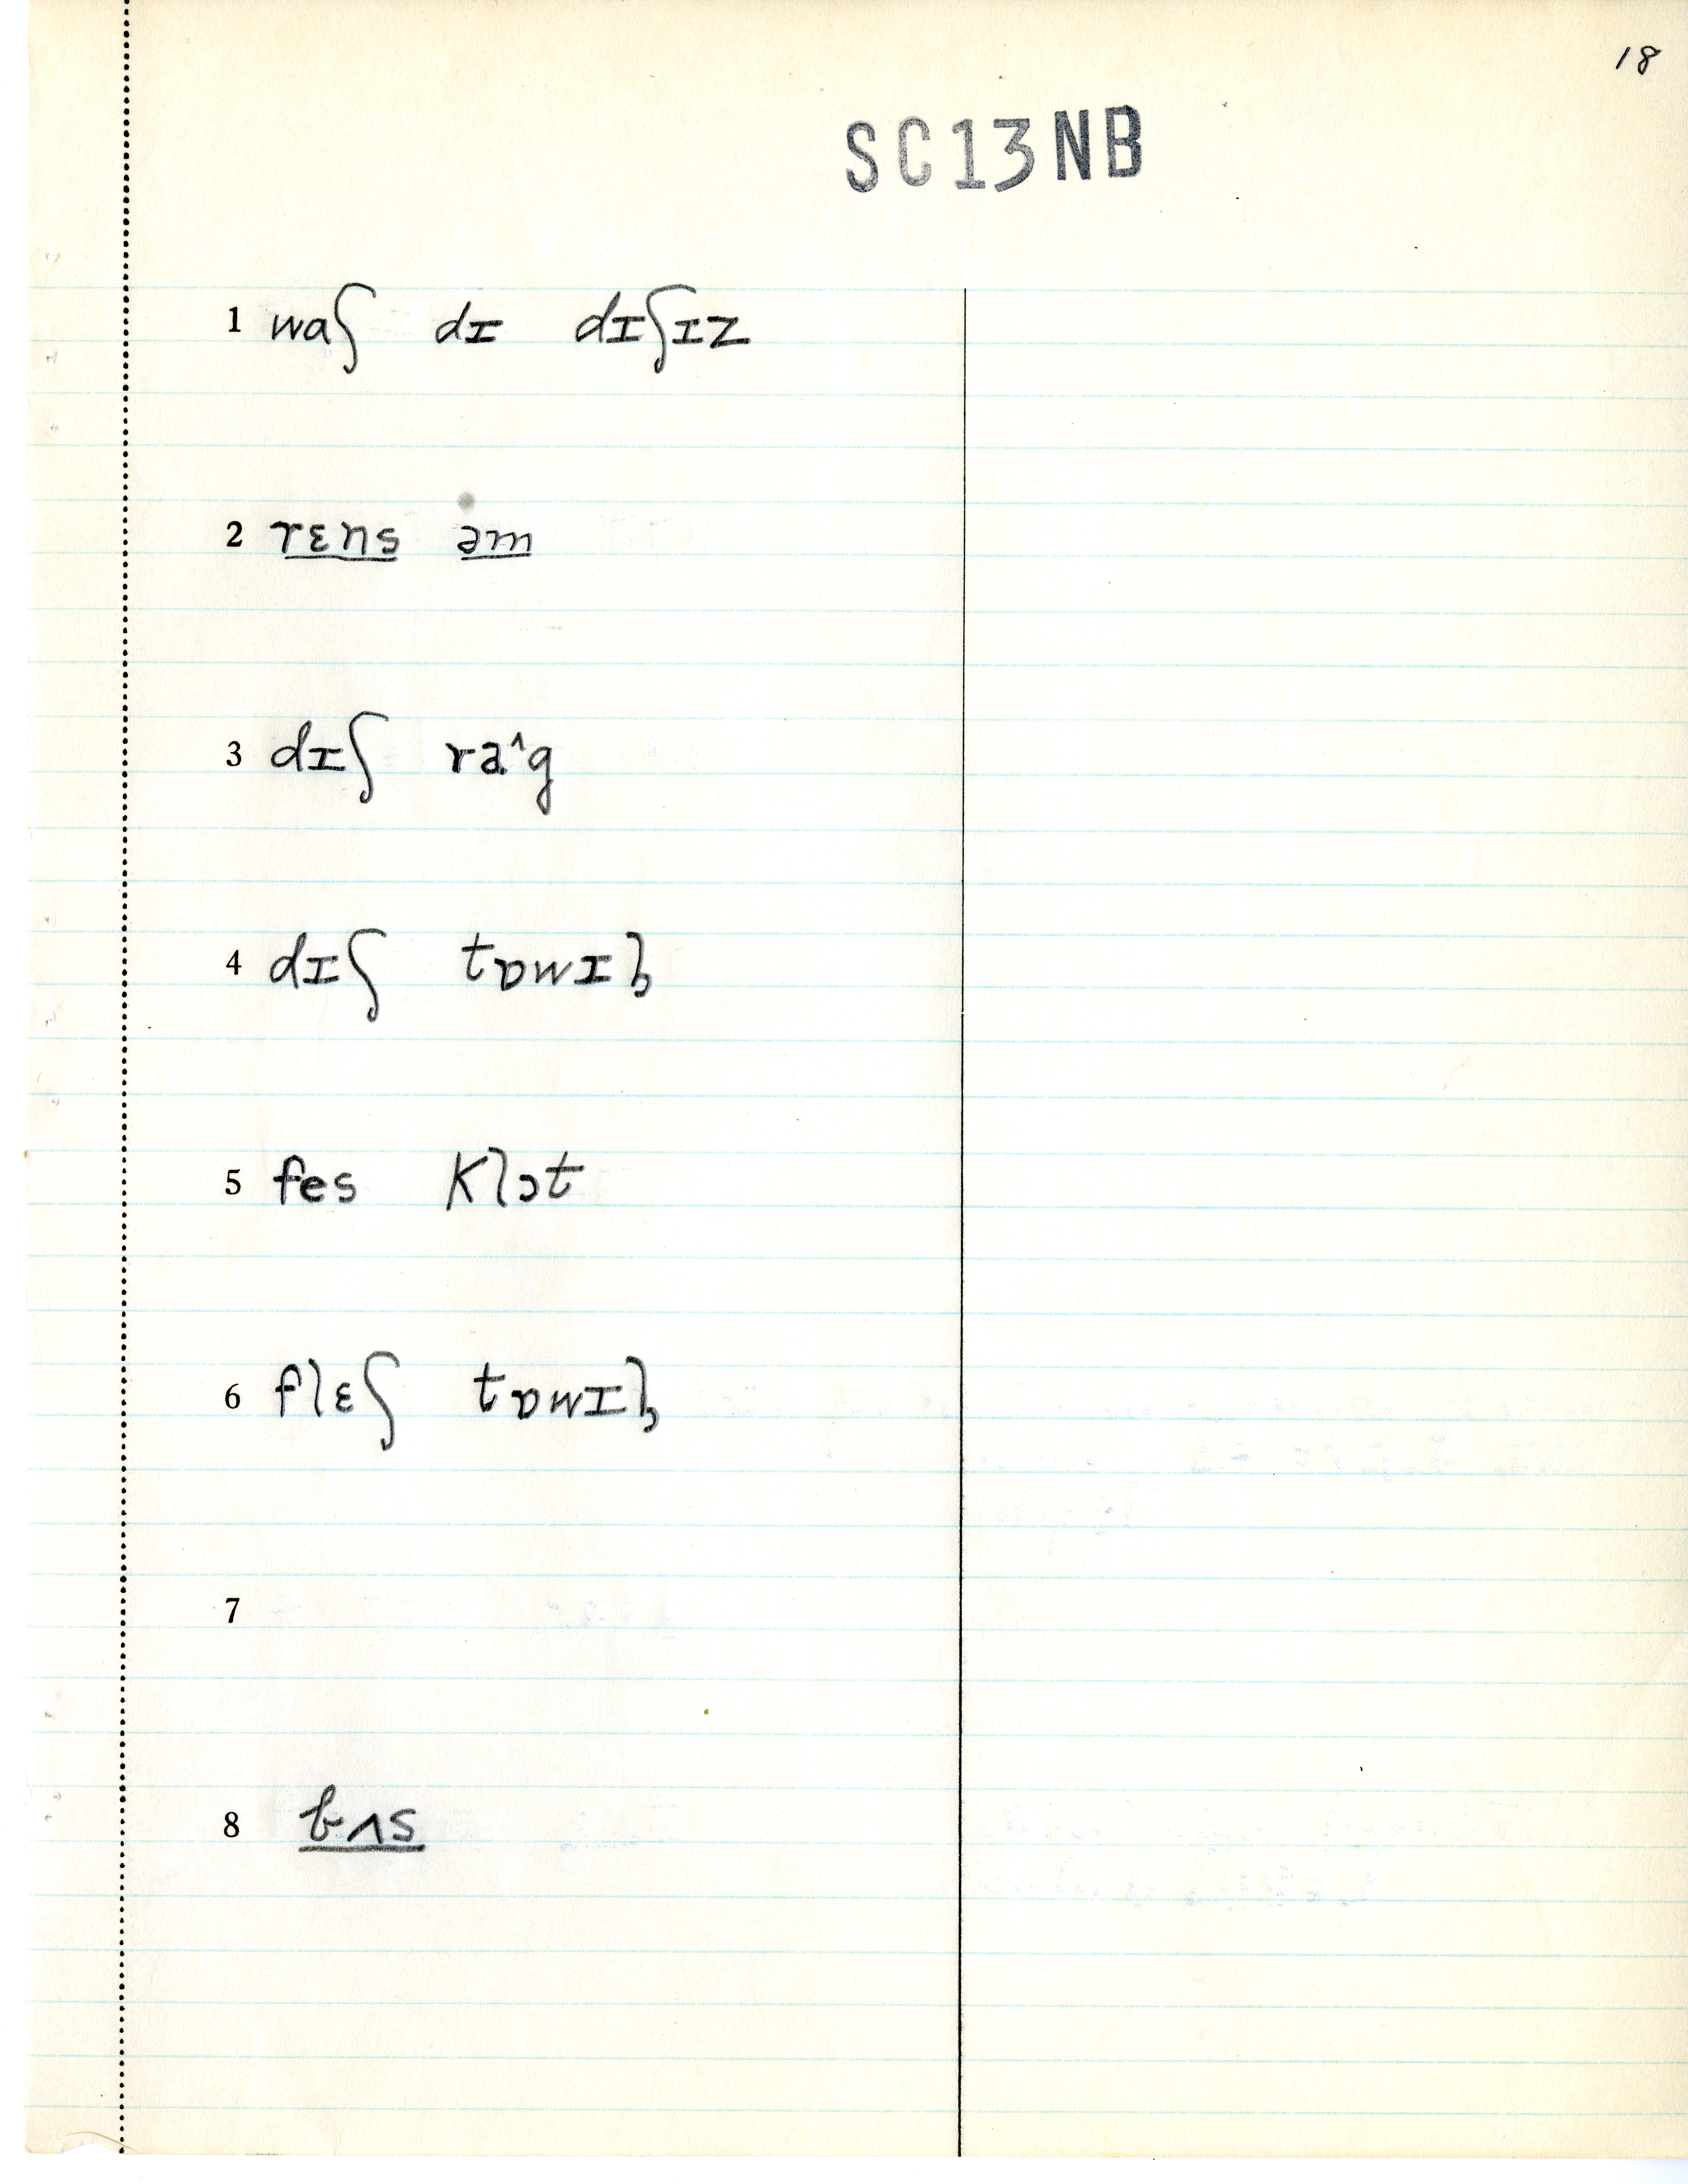 18
SC13NB
1 waʃ dɪ dɪʃɪz
2 rɛns əm
3 dɪʃ
4 dɪʃ tɒwɪ
5 fes klɔt
6 flɛʃ tɒwɪ
7
8